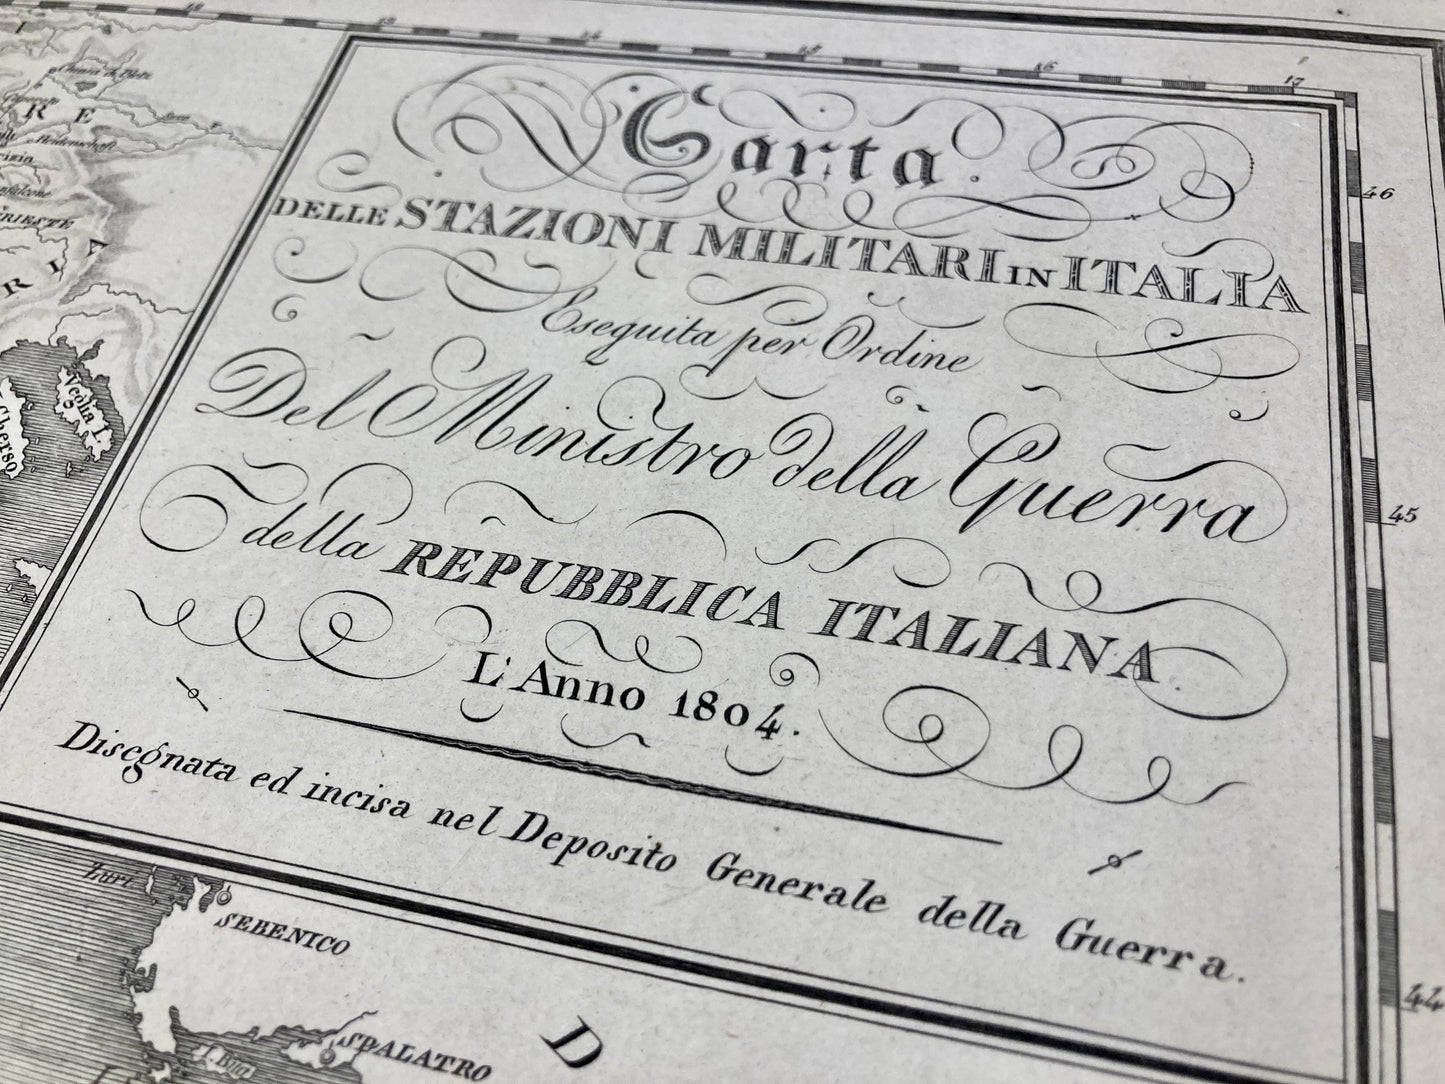 12
13
14
15
16
17
R E
TRIESTE
R I A
Veglia I.
Cherso
Carta
DELLE STAZIONI MILITARI IN ITALIA
Eseguita per Ordine
Del Ministro della Guerra
della REPUBBLICA ITALIANA
L'Anno 1804.
Disegnata ed incisa nel Deposito Generale della Guerra.
46
45
44
Zuri
SEBENICO
SPALATRO
I. Bua
D